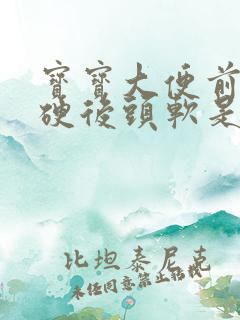 寶寶大便前
硬後頭軟是
比坦泰尼克
未經同意禁止轉載